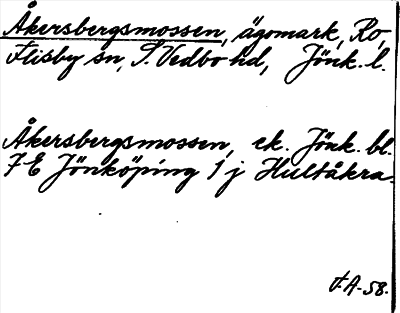 Åkersbergsmossen, ägomark, Ro,
Flisby sn, S. Vedbo hd, Jönk. l.
Åkersbergsmossen, ek. Jönk. bl.
7 E Jönköping 1 j Hultåkra.
F.A-58.